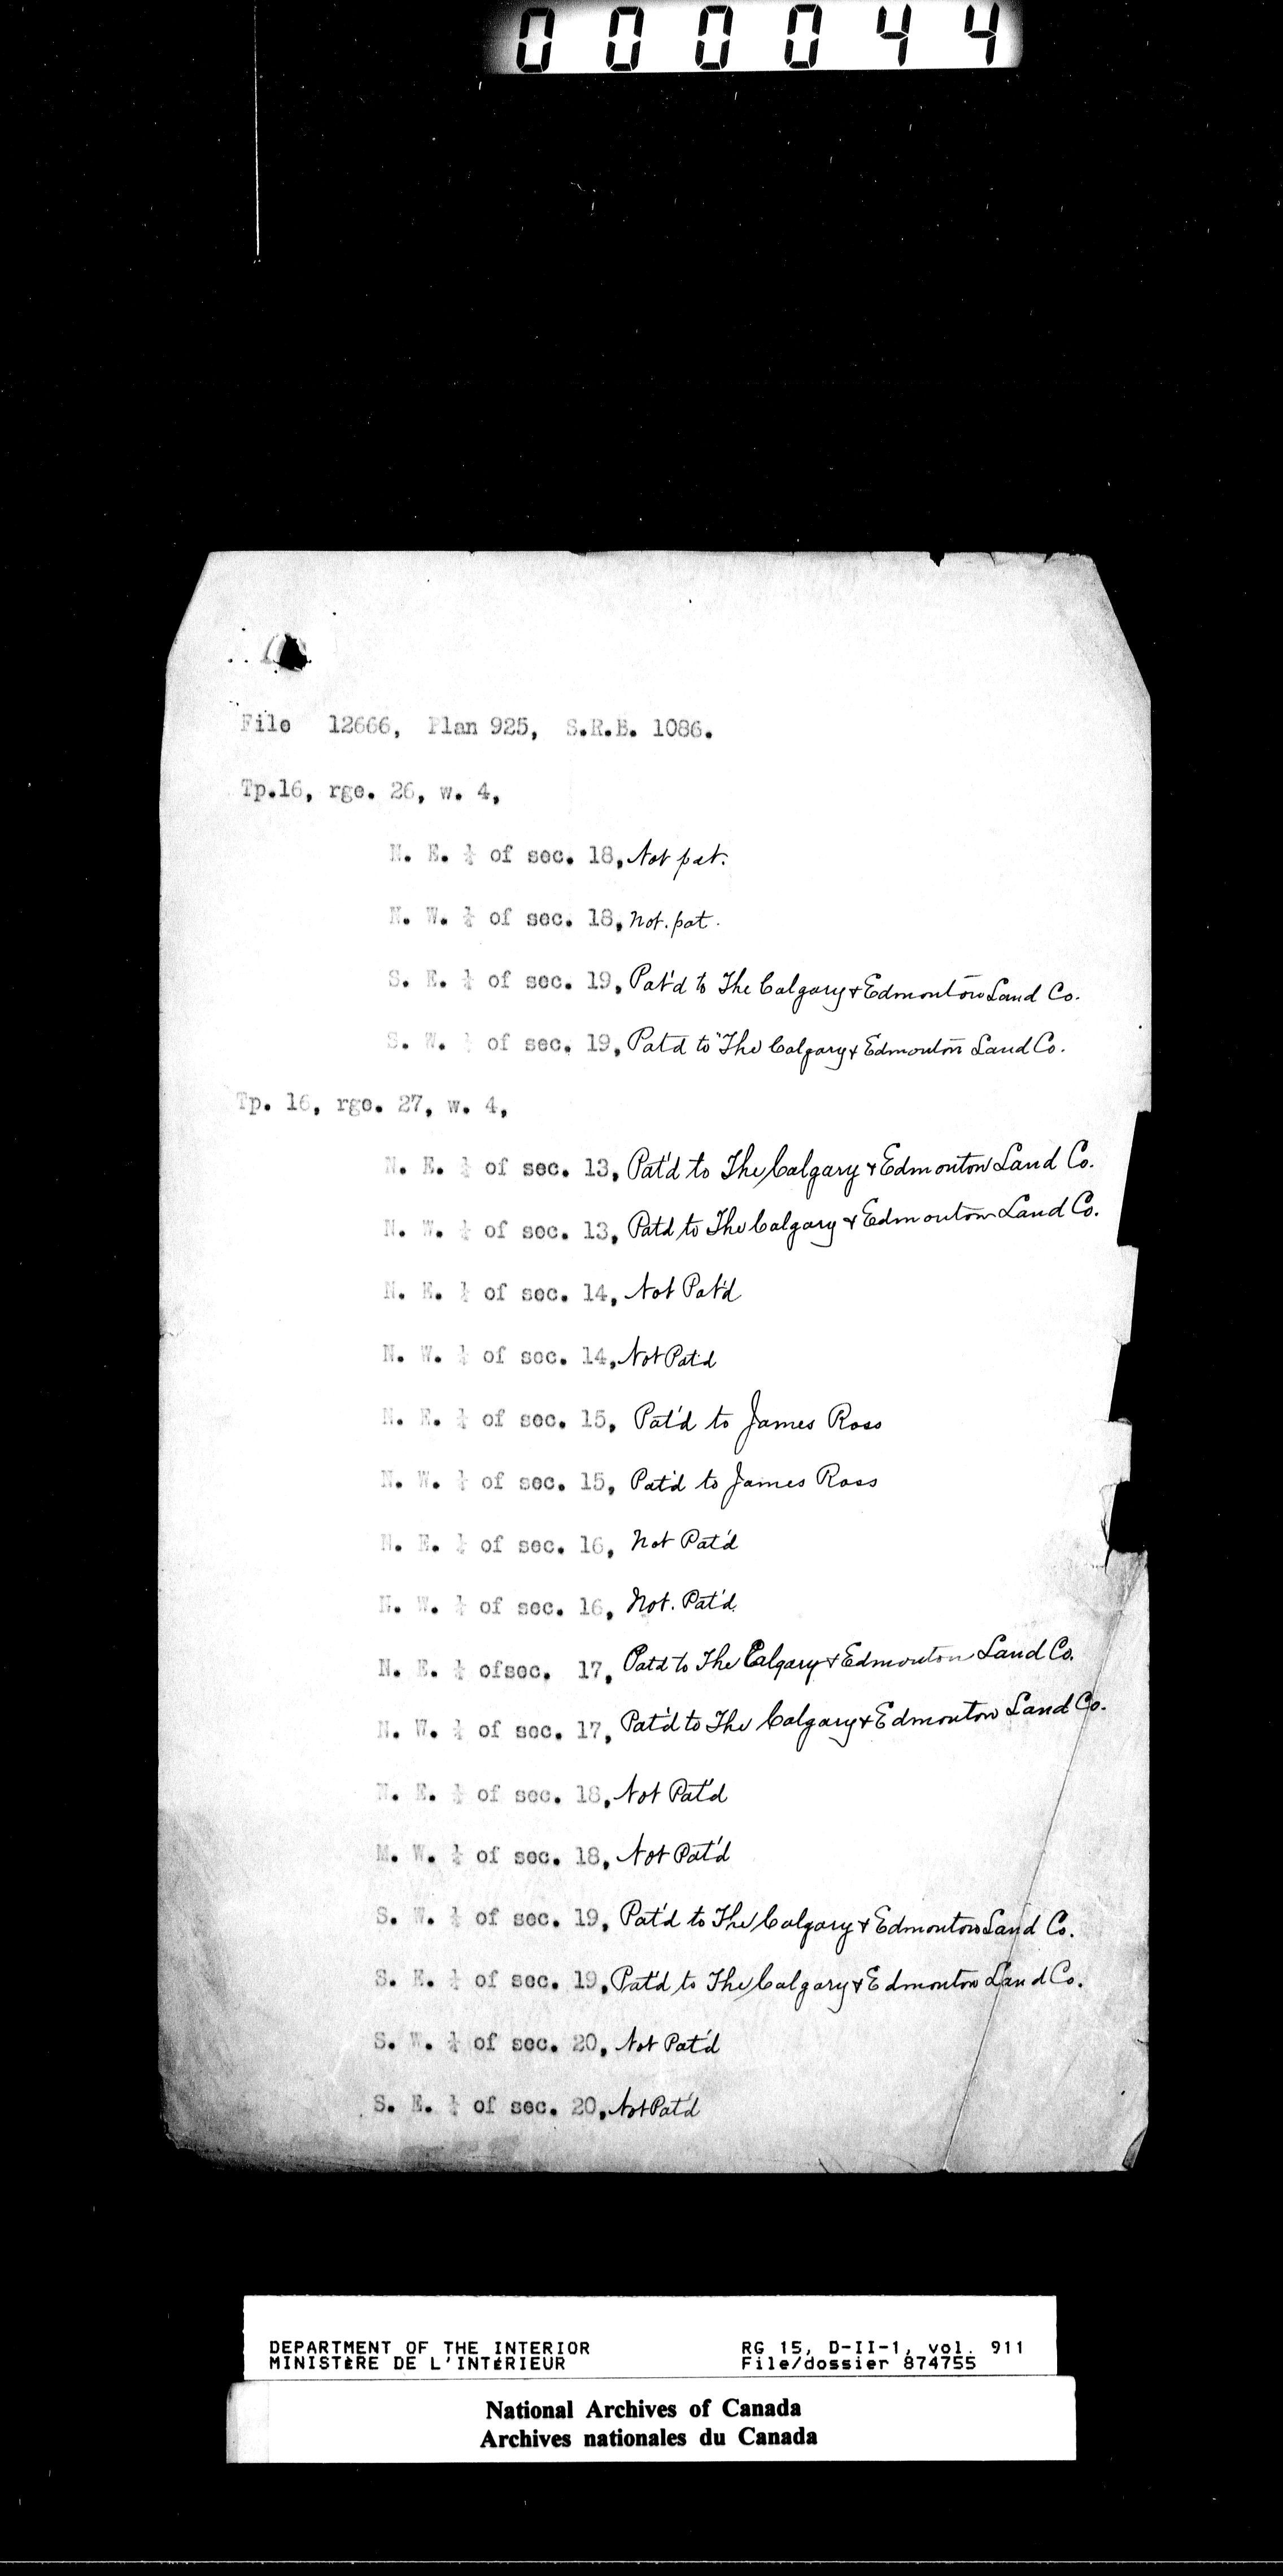 000044
File 12666, Plan 925, S.R.B. 1086.
Tp.16, rge. 26, w. 4,
N. E. ¼ of sec. 18, Not pat.
N. W. ¼ of sec. 18, Not. pat.
S. E. ¼ of sec. 19, Pat'd to The Calgary & Edmonton Land Co.
S. W. ¼ of sec. 19, Pat'd to The Calgary & Edmonton Land Co.
Tp. 16, rge. 27, w. 4,
N. E. ¼ of sec. 13, Pat'd to The Calgary & Edmonton Land Co.
N. W. ¼ of sec. 13, Pat'd to The Calgary & Edmonton Land Co.
N. E. ¼ of sec. 14, Not Pat'd
N. W. ¼ of sec. 14, Not Pat'd
N. E. ¼ of sec. 15, Pat'd to James Ross
N. W. ¼ of sec. 15, Pat'd to James Ross
N. E. ¼ of sec. 16, Not Pat'd
N. W. ¼ of sec. 16, Not. Pat'd.
N. E. ¼ ofsec. 17, Pat'd to The Calgary & Edmonton Land Co.
N. W. ¼ of sec. 17, Pat'd to The Calgary & Edmonton Land Co.
N. E. ¼ of sec. 18, Not Pat'd
M. W. ¼ of sec. 18, Not Pat'd
S. W. ¼ of sec. 19, Pat'd to The Calgary & Edmonton Land Co.
S. E. ¼ of sec. 19, Pat'd to The Calgary & Edmonton Land Co.
S. W. ¼ of sec. 20, Not Pat'd
S. E. ¼ of sec. 20, Not Pat'd
DEPARTMENT OF THE INTERIOR RG 15, D-II-1, vol. 911
MINISTÈRE DE L'INTÉRIEUR File/dossier 874755
National Archives of Canada
Archives nationales du Canada